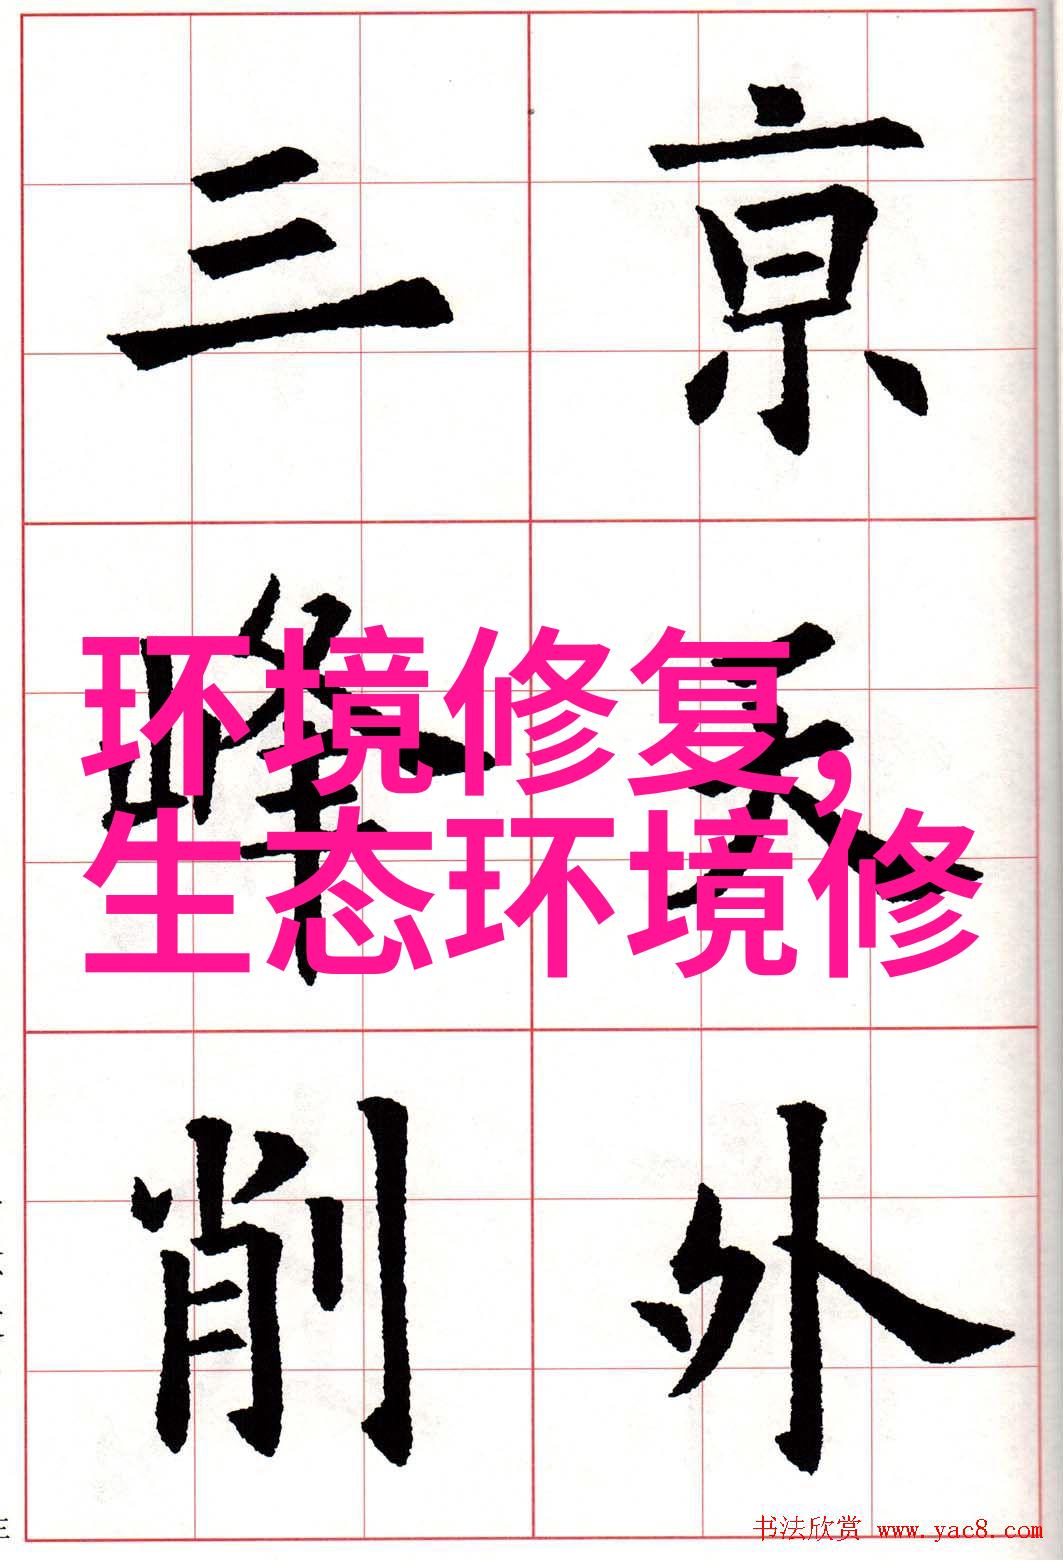 亰天外
三峰削
环境修复,
生态环境修
书法欣赏 www.yac8.com